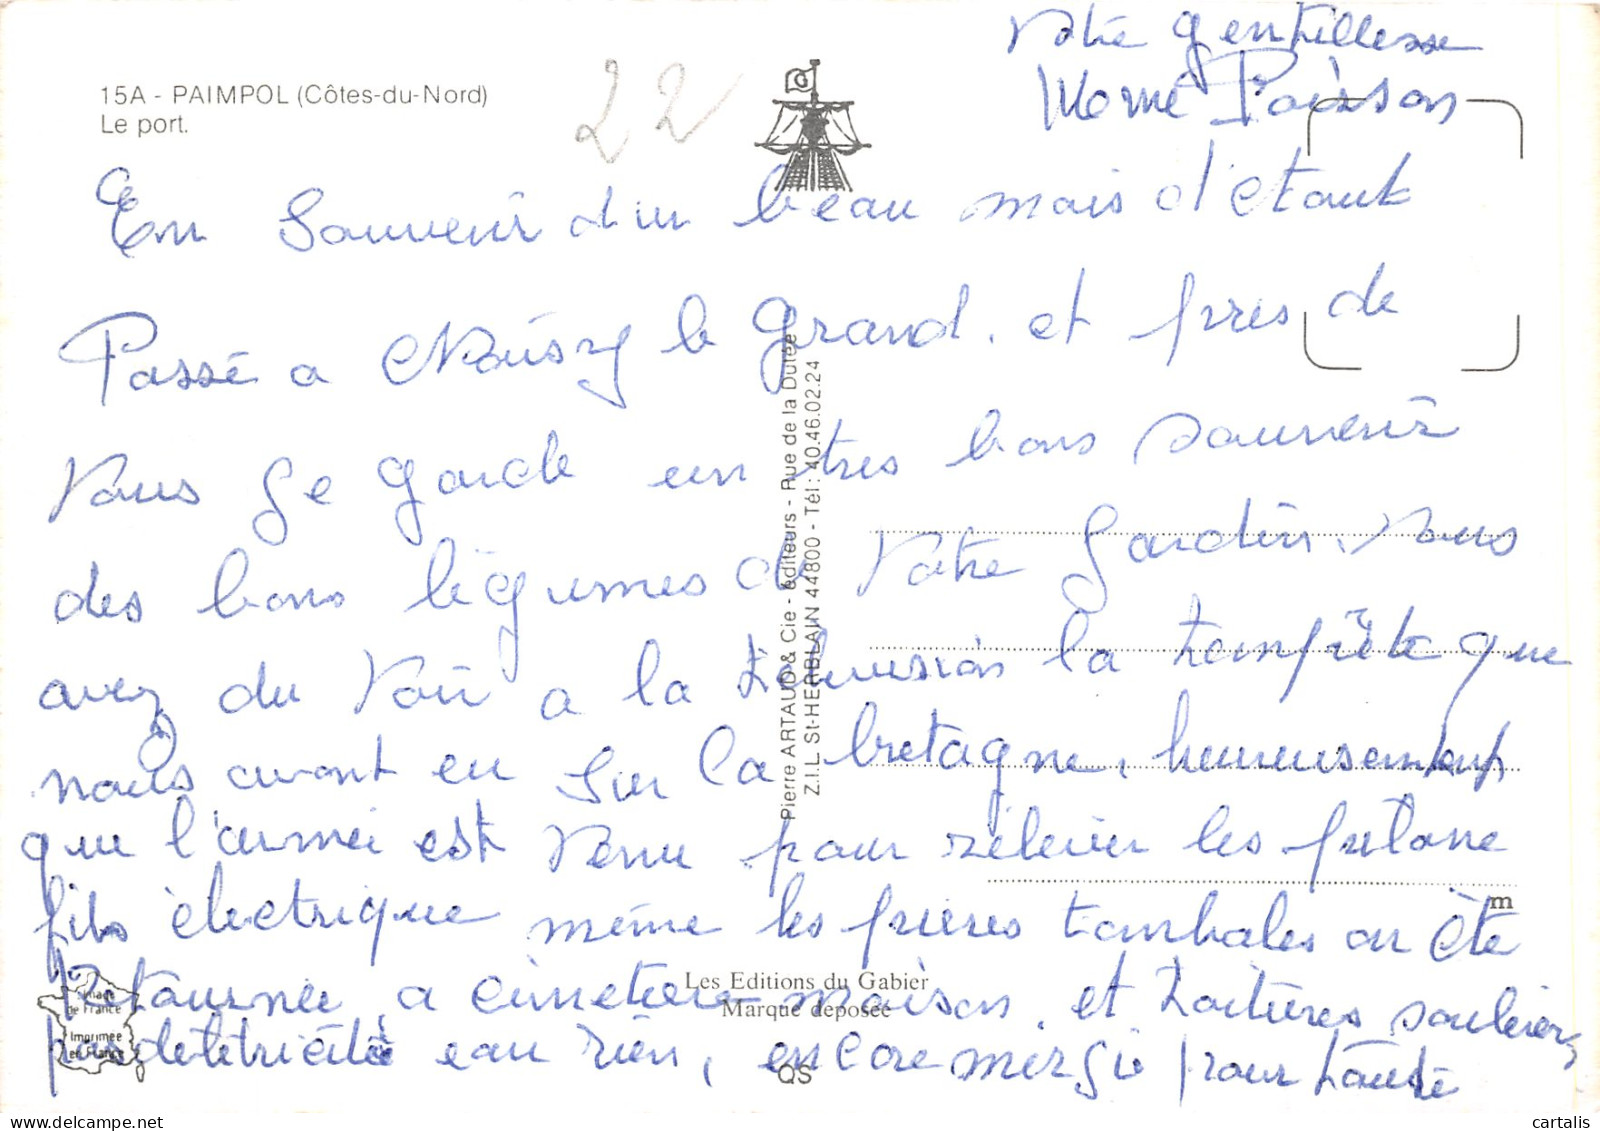 15A - PAIMPOL (Côtes-du-Nord)
Le port.
22
G
En Souvenir d'un beau mois d'etauk
Passé a Noisy le grand. et pres de
Vous Je garde un tres bons souvenir
des bons légumes de Votre Jardin. Vous
avez du Voir a la télévision la tempête que
nous avont eu sur la bretagne, heureusement
que l'armei est Venu pour rélever les pilone
fils èlectrique même les prières tombales on été
Retournée, a cimetiere maison. et toitieres soulever
pas delétricité eau rien, encore mersie pour toute
Votre gentillesse
Meme Poisson
Pierre ARTAUD & Cie - éditeurs - Rue de la Dutée
Z.I.L. St-HERBLAIN 44800 - Tél: 40.46.02.24
m
Les Editions du Gabier
Marque déposée
Image
de France
Imprimée
en France
QS
cartalis